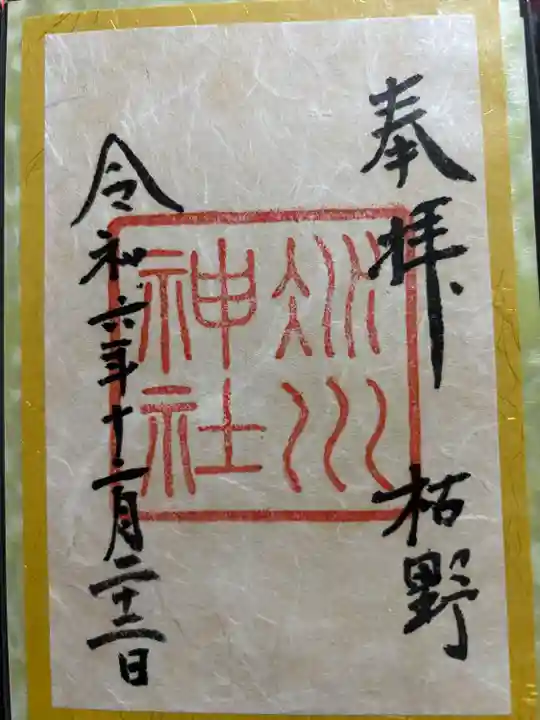 奉拝 枯野
冰川
神社
令和六年十二月二十二日